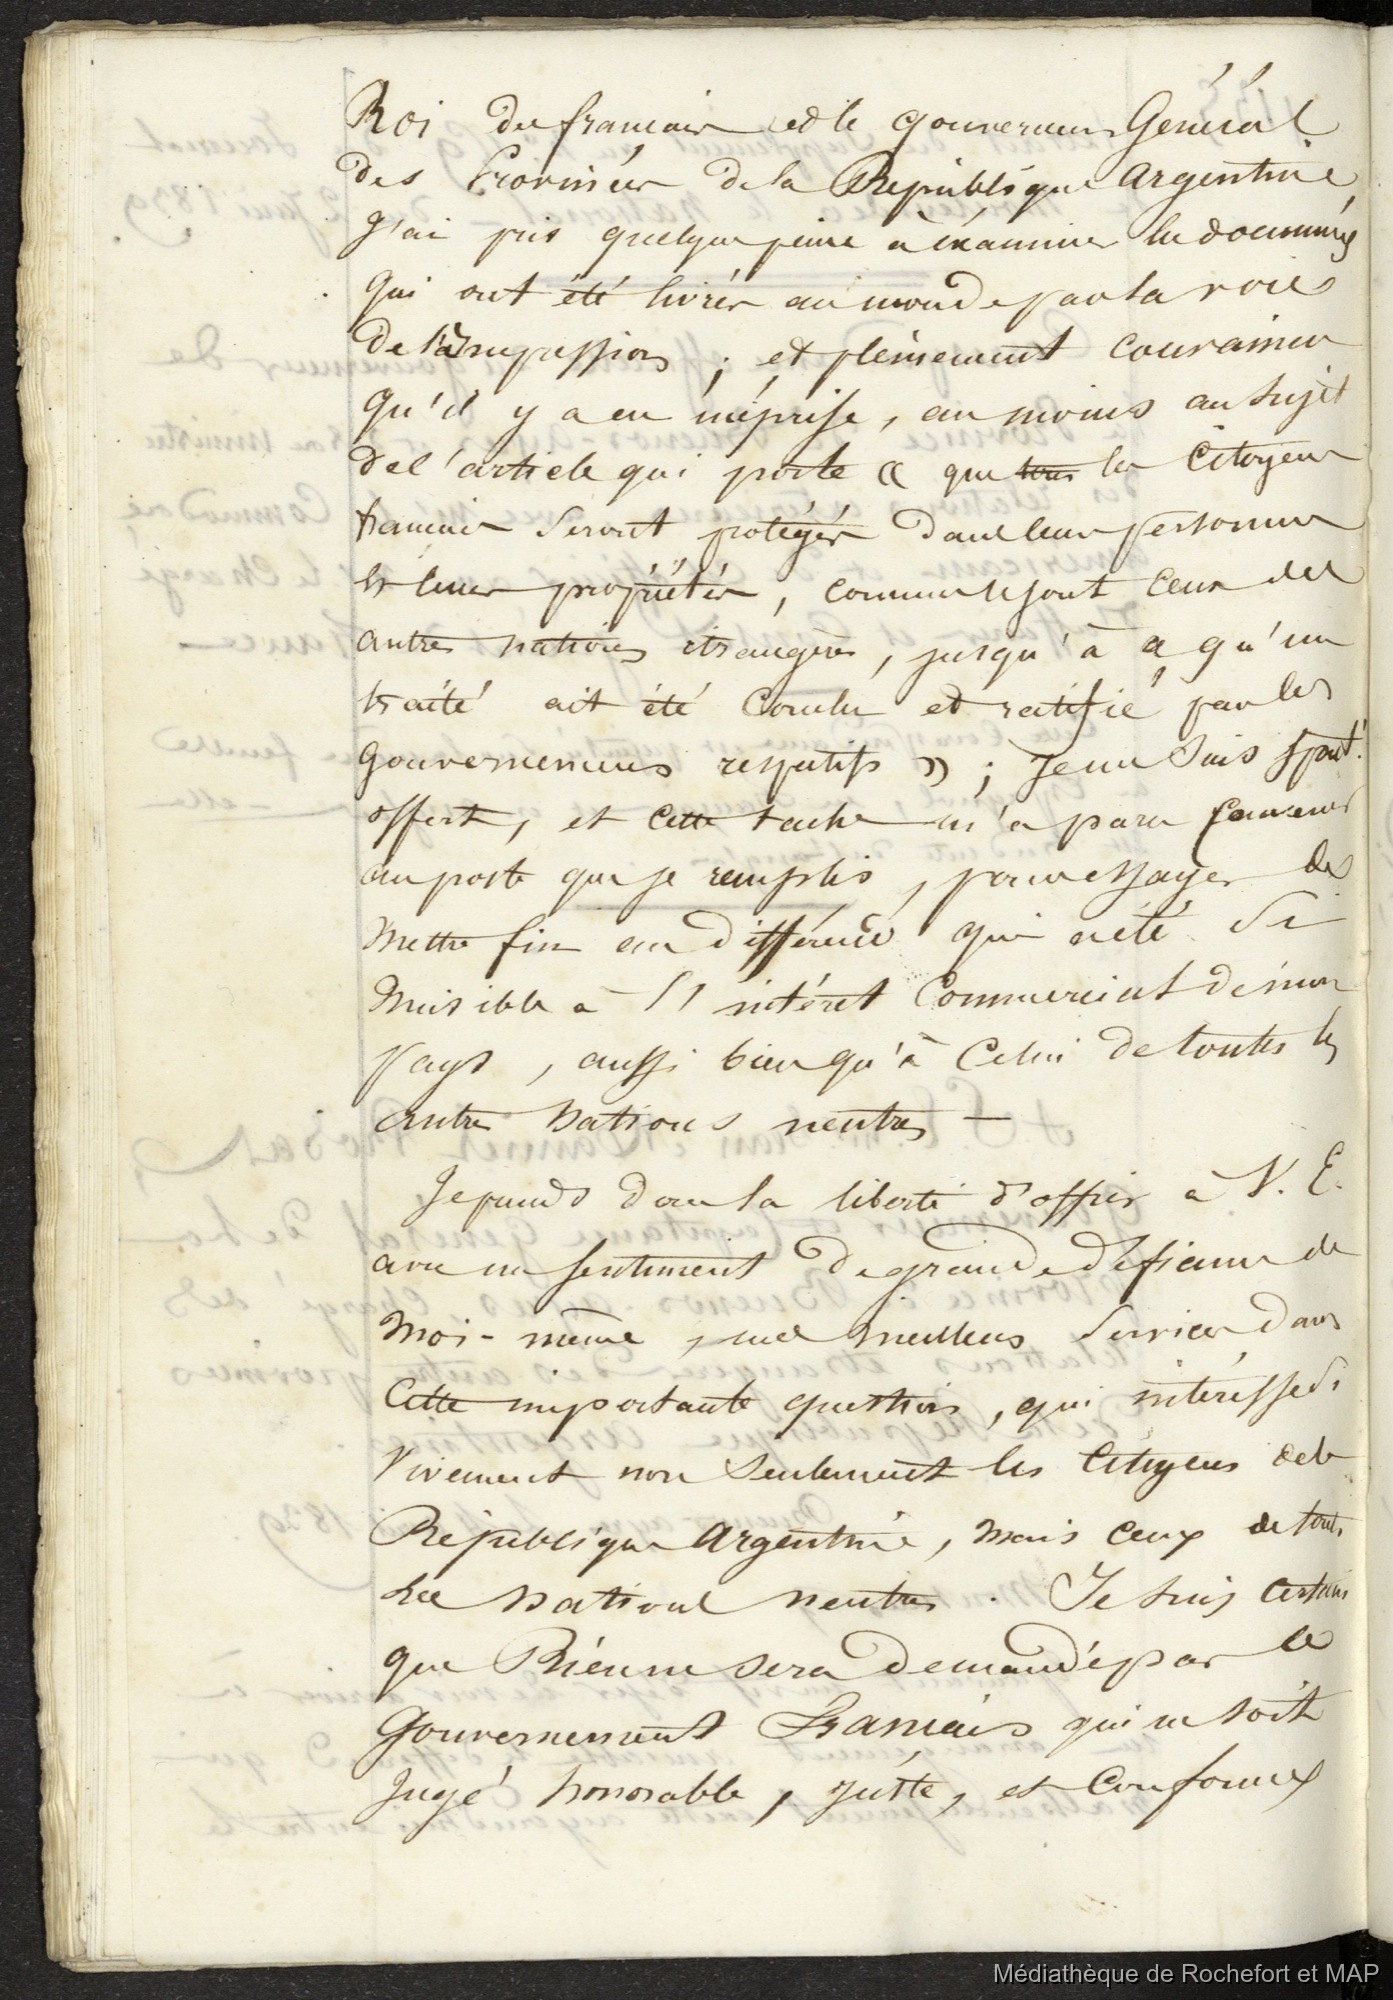 Roi des français et le gouverneur Général
des Provinces de la République argentine,
J'ai pris quelque peine à éxaminer les documens
qui ont été livrés au monde par la voie
De l'impression ; et pleinement convaincu
qu'il y a eu méprise, au moins au sujet
de l'article qui porte « que tous les Citoyens
français seront protégés dans leurs personnes
et leurs propriétés, comme le sont ceux des
autres nations étrangères, jusqu'à ce qu'un
traité ait été conclu et ratifié par les
gouvernemens respectifs » ; Je me suis spont.t
offert, et cette tache m'a paru convenir
au poste que je remplis, pour essayer de
mettre fin au différend qui a été si
nuisible à l'intérêt Commercial de mon
pays, aussi bien qu'à celui de toutes les
autres nations neutres —
Je prends donc la liberté d'offrir à V. E.
avec un sentiment de grande défiance de
moi-même, mes meilleurs services dans
cette importante question, qui intéresse si
vivement non seulement les Citoyens de la
République argentine, mais ceux de toutes
les nations neutres. Je suis certain
que Rien ne sera demandé par le
Gouvernement Français qui ne soit
Jugé honorable, juste, et conforme
Médiathèque de Rochefort et MAP